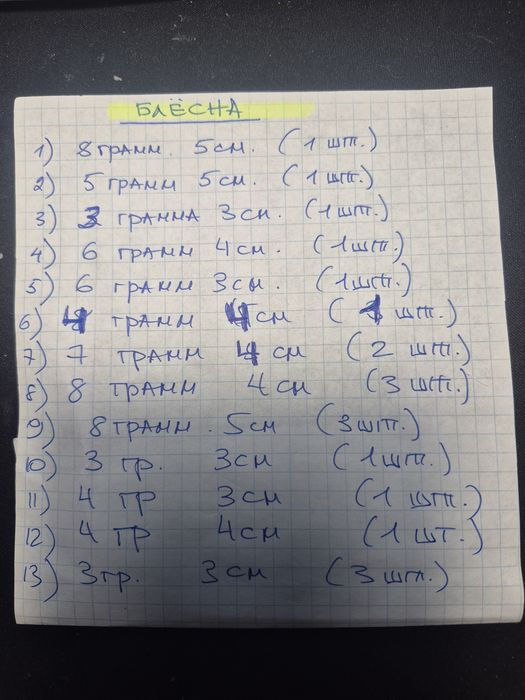 БЛЁСНА
1) 8 грамм. 5 см. (1 шт.)
2) 5 грамм 5 см. (1 шт.)
3) 3 грамма 3 см. (1 шт.)
4) 6 грамм 4 см. (1 шт.)
5) 6 грамм 3 см. (1 шт.)
6) 4 грамм 4 см (1 шт.)
7) 7 грамм 4 см (2 шт.)
8) 8 грамм 4 см (3 шт.)
9) 8 грамм. 5 см (3 шт.)
10) 3 гр. 3 см (1 шт.)
11) 4 гр 3 см (1 шт.)
12) 4 гр 4 см (1 шт.)
13) 3 гр. 3 см (3 шт.)